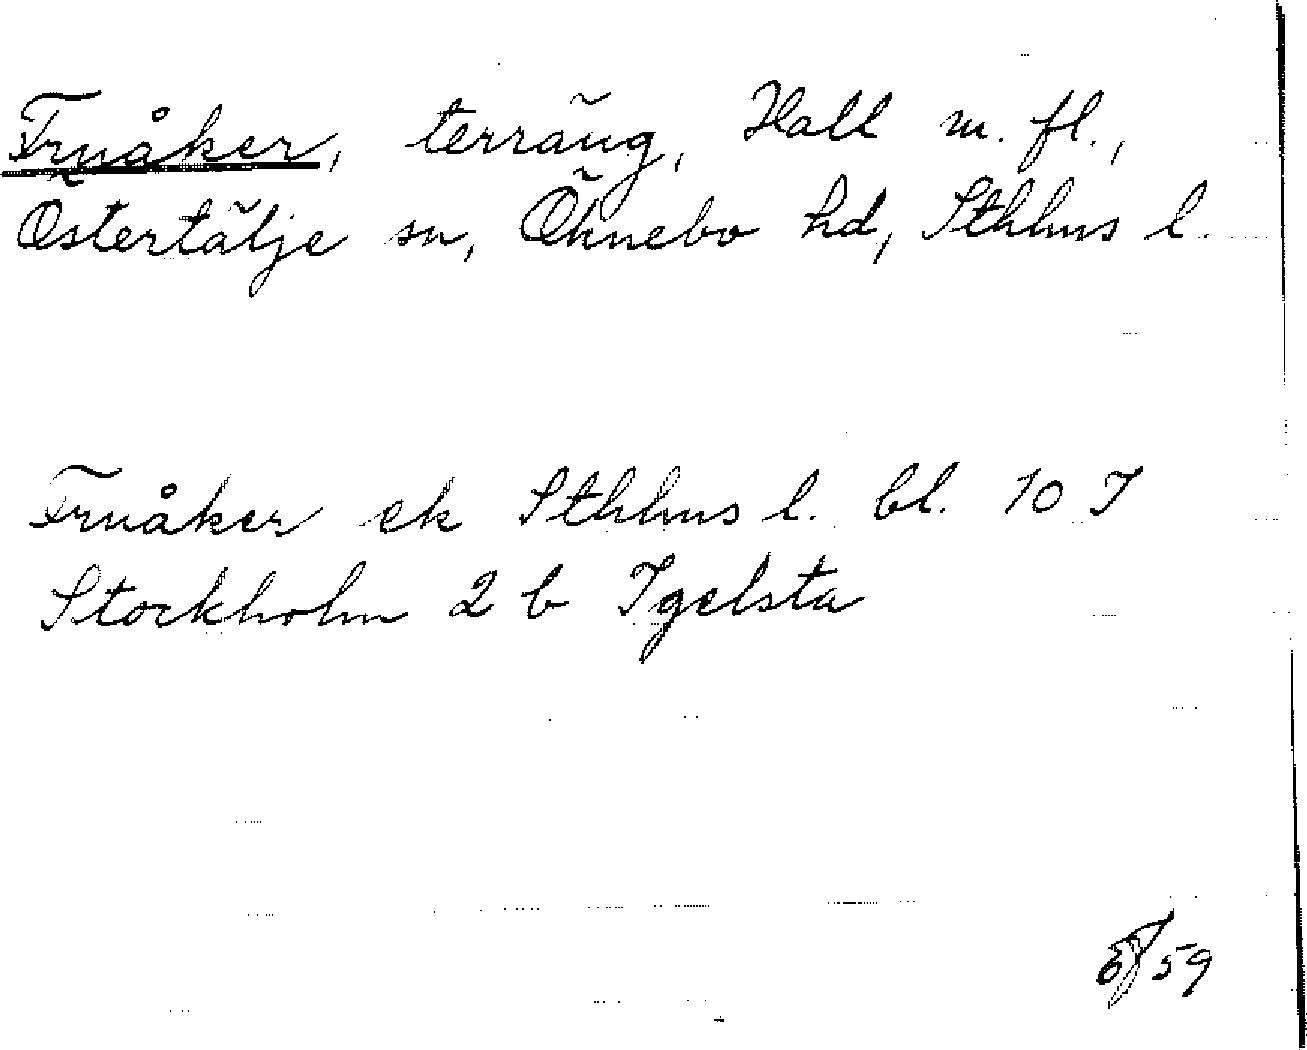 Fruåker, terräng, Hall m. fl.,
Östertälje sn, Öknebo hd, Sthlms l.
Fruåker ek Sthlms l. bl. 10 I
Stockholm 2 b Igelsta
59